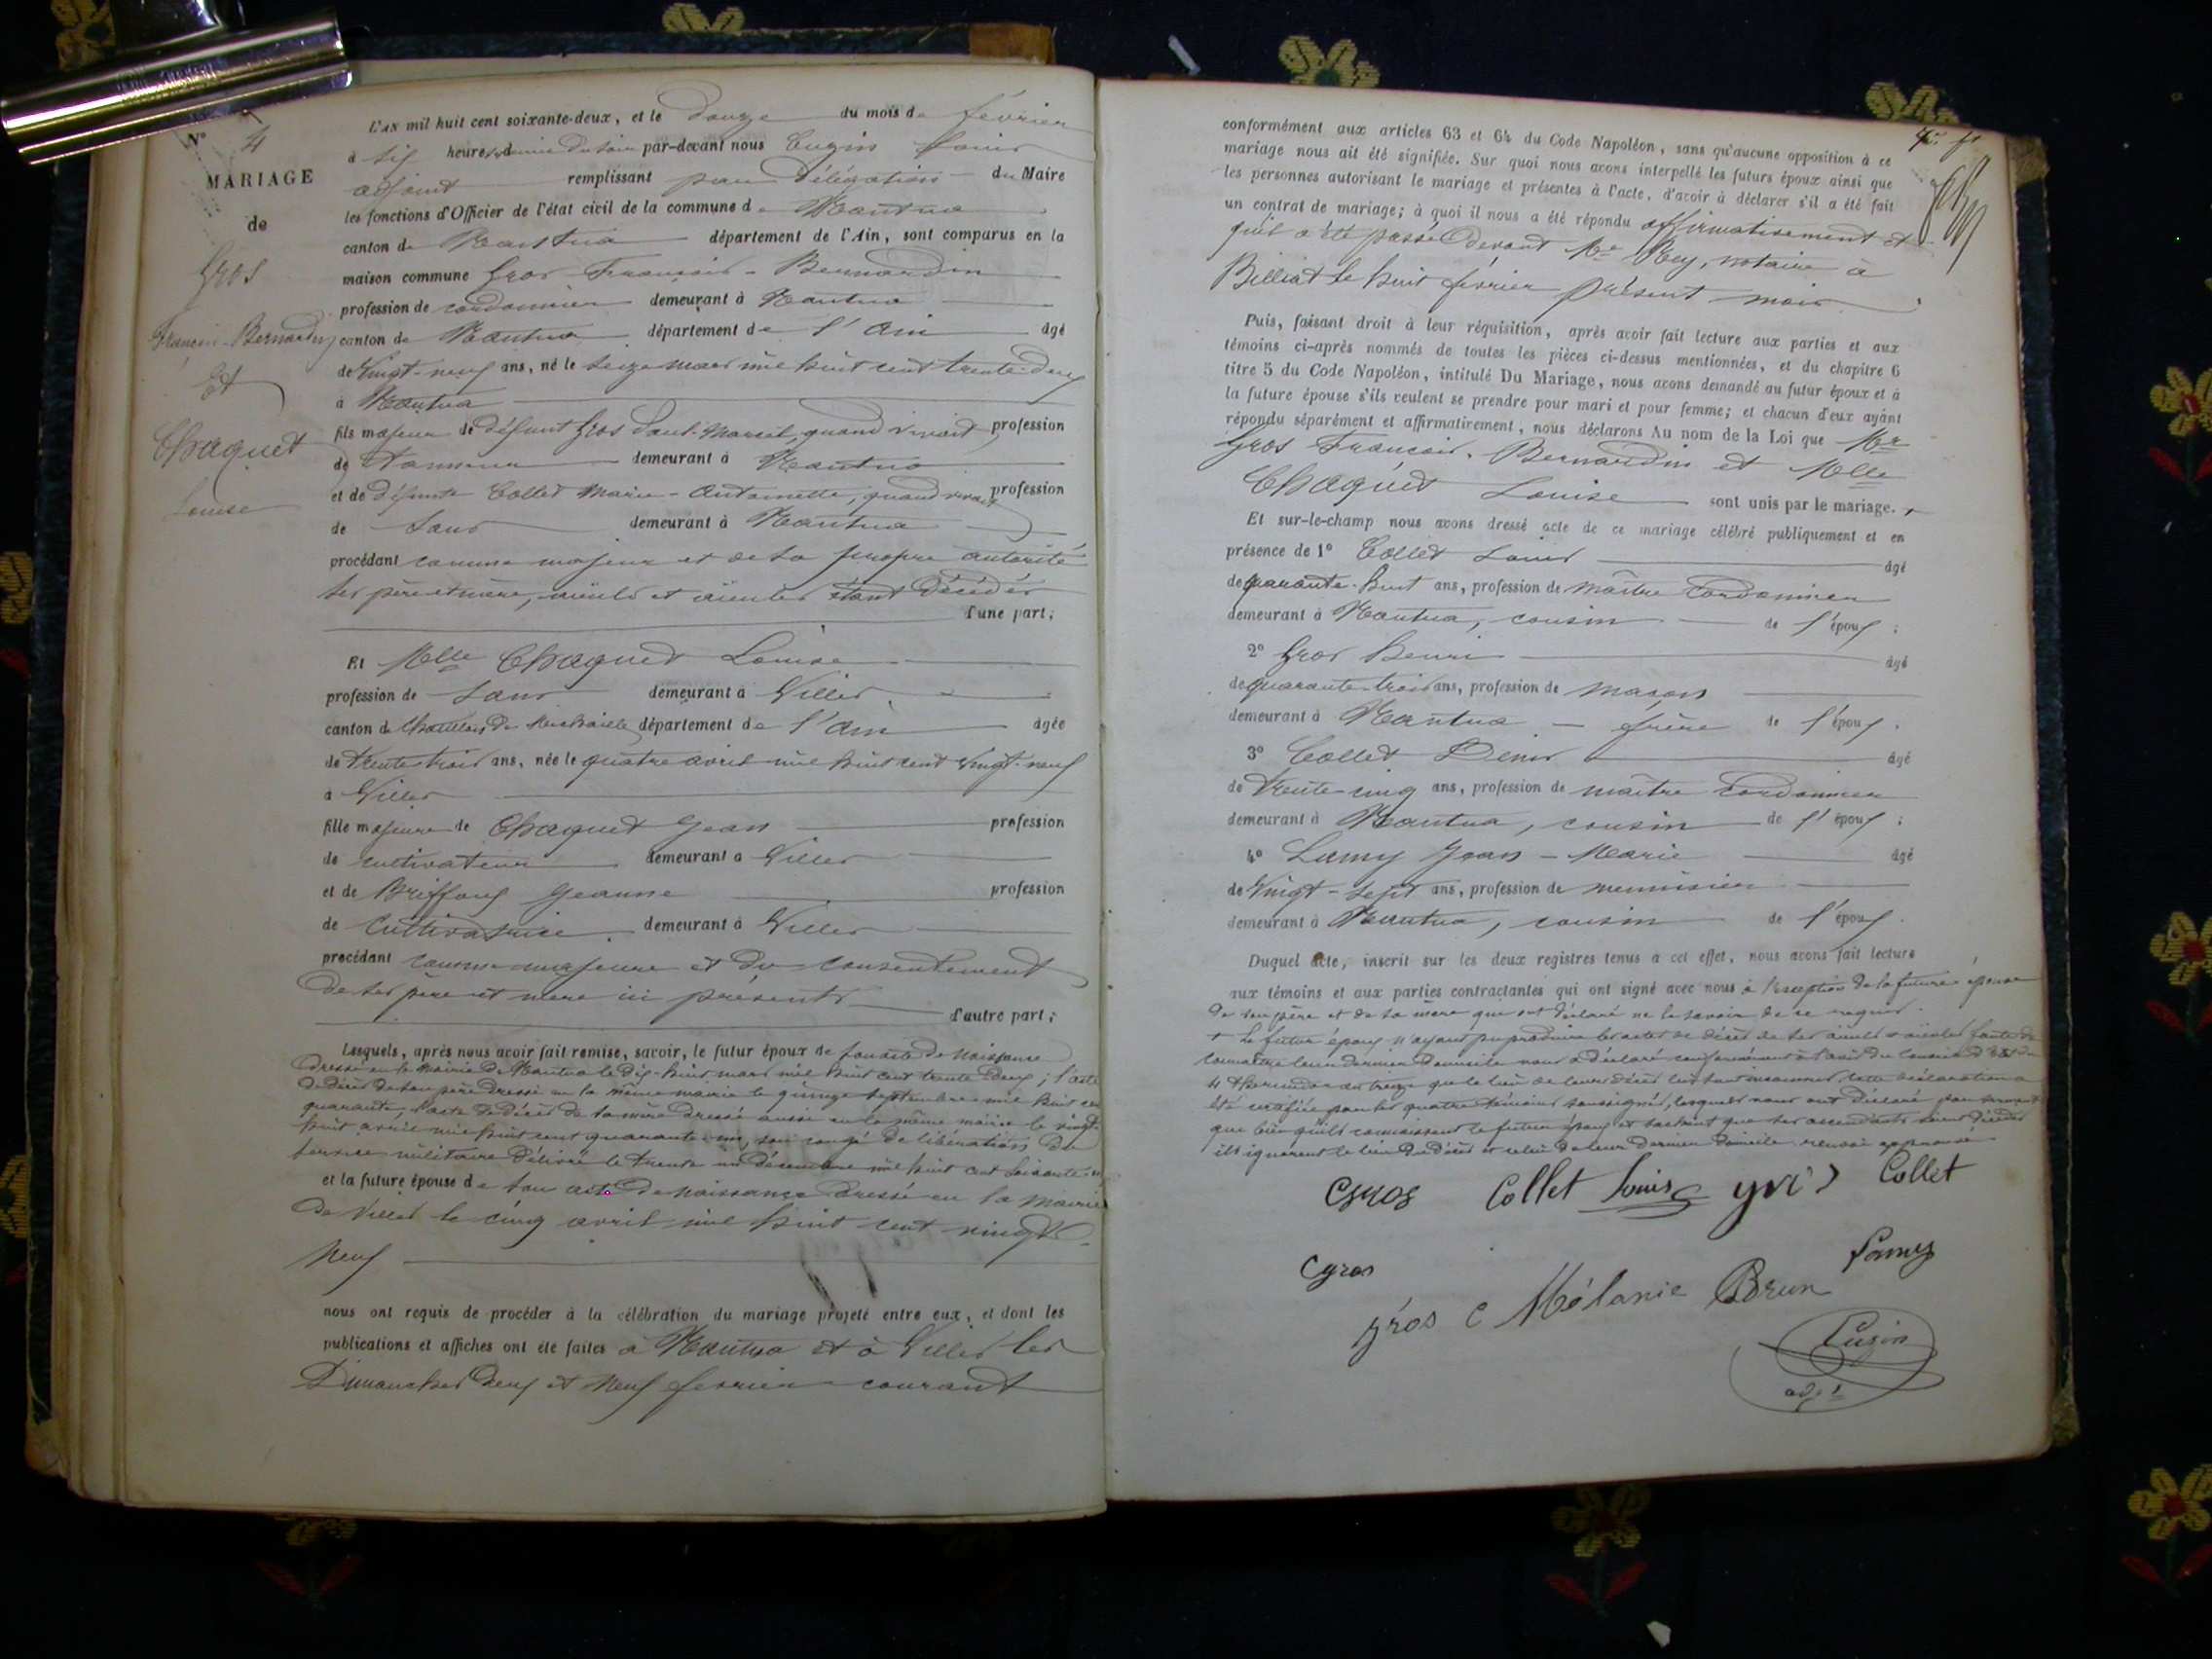 N° 4
MARIAGE
de
Gros
François-Bernardin
Et
Chaquet
Louise
L'AN mil huit cent soixante-deux, et le douze du mois de février
à six heures & demie du soir par-devant nous Cuzin Louis
adjoint remplissant par délégation du Maire
les fonctions d'Officier de l'état civil de la commune de Nantua
canton de Nantua département de l'Ain, sont comparus en la
maison commune Gros François-Bernardin
profession de cordonnier demeurant à Nantua
canton de Nantua département de l'Ain âgé
de vingt-neuf ans, né le seize mars mil huit cent trente deux
à Nantua
fils majeur de défunt Gros Paul-Marcel, quand vivait profession
de tanneur demeurant à Nantua
et de défunte Collet Marie-Antoinette, quand vivait profession
de sans demeurant à Nantua
procédant comme majeur et de sa propre autorité
ses père et mère, aïeuls et aïeules étant décédés
d'une part;
Et Melle Chaquet Louise
profession de sans demeurant à Villes
canton de Chatillon de Michaille département de l'Ain âgée
de trente trois ans, née le quatre avril mil huit cent vingt-neuf
à Villes
fille majeure de Chaquet Jean profession
de cultivateur demeurant à Villes
et de Briffoux Jeanne profession
de cultivatrice demeurant à Villes
procédant comme majeure et du consentement
de ses père et mère ici présents
d'autre part;
Lesquels, après nous avoir fait remise, savoir, le futur époux de son acte de naissance
dressé en la mairie de Nantua le dix-huit mars mil huit cent trente deux; l'acte
de décès de son père dressé en la même mairie le quinze septembre mil huit cent
quarante, l'acte de décès de sa mère dressé aussi en la même mairie le vingt
huit avril mil huit cent quarante un, son congé de libération du
service militaire délivré le trente un décembre mil huit cent soixante un
et la future épouse de son acte de naissance dressé en la mairie
de Villes le cinq avril mil huit cent vingt
neuf
nous ont requis de procéder à la célébration du mariage projeté entre eux, et dont les
publications et affiches ont été faites à Nantua et à Villes les
Dimanches deux et neuf février courant
conformément aux articles 63 et 64 du Code Napoléon, sans qu'aucune opposition à ce
mariage nous ait été signifiée. Sur quoi nous avons interpellé les futurs époux ainsi que
les personnes autorisant le mariage et présentes à l'acte, d'avoir à déclarer s'il a été fait
un contrat de mariage; à quoi il nous a été répondu affirmativement et
qu'il a été passé devant Me Rey, notaire à
Billiat le huit février présent mois
Puis, faisant droit à leur réquisition, après avoir fait lecture aux parties et aux
témoins ci-après nommés de toutes les pièces ci-dessus mentionnées, et du chapitre 6
titre 5 du Code Napoléon, intitulé Du Mariage, nous avons demandé au futur époux et à
la future épouse s'ils veulent se prendre pour mari et pour femme; et chacun d'eux ayant
répondu séparément et affirmativement, nous déclarons Au nom de la Loi que Mr
Gros François-Bernardin et Melle
Chaquet Louise sont unis par le mariage. +
Et sur-le-champ nous avons dressé acte de ce mariage célébré publiquement et en
présence de 1° Collet Louis âgé
de quarante-huit ans, profession de maître cordonnier
demeurant à Nantua, cousin de l'époux;
2° Gros Henri âgé
de quarante-trois ans, profession de maçon
demeurant à Nantua – frère de l'époux.
3° Collet Denis âgé
de trente-cinq ans, profession de maître cordonnier
demeurant à Nantua, cousin de l'époux;
4° Lamy Jean-Marie âgé
de vingt-sept ans, profession de menuisier
demeurant à Nantua, cousin de l'époux.
Duquel acte, inscrit sur les deux registres tenus à cet effet, nous avons fait lecture
aux témoins et aux parties contractantes qui ont signé avec nous à l'exception de la future épouse
de son père et de sa mère que ont déclaré ne le savoir de ce requis.
+ Le futur époux n'ayant pu produire les actes de décès de ses aïeuls & aïeules faute de
connaître leur dernier domicile nous a déclaré conformément à l'avis du Conseil d'Etat du
4 thermidor an treize que le lieu de leurs décès lui sont inconnus, cette déclaration a
été certifiée par les quatre témoins soussignés, lesquels nous ont déclaré par serment
que bien qu'ils connaissent le futur époux et sachent que ses ascendants soient décédés
ils ignorent le lieu du décès et celui de leur dernier domicile renvoi approuvé
Gros Collet Louis Collet
Gros Lamy
gros Mélanie Brun
Cuzin
adjt